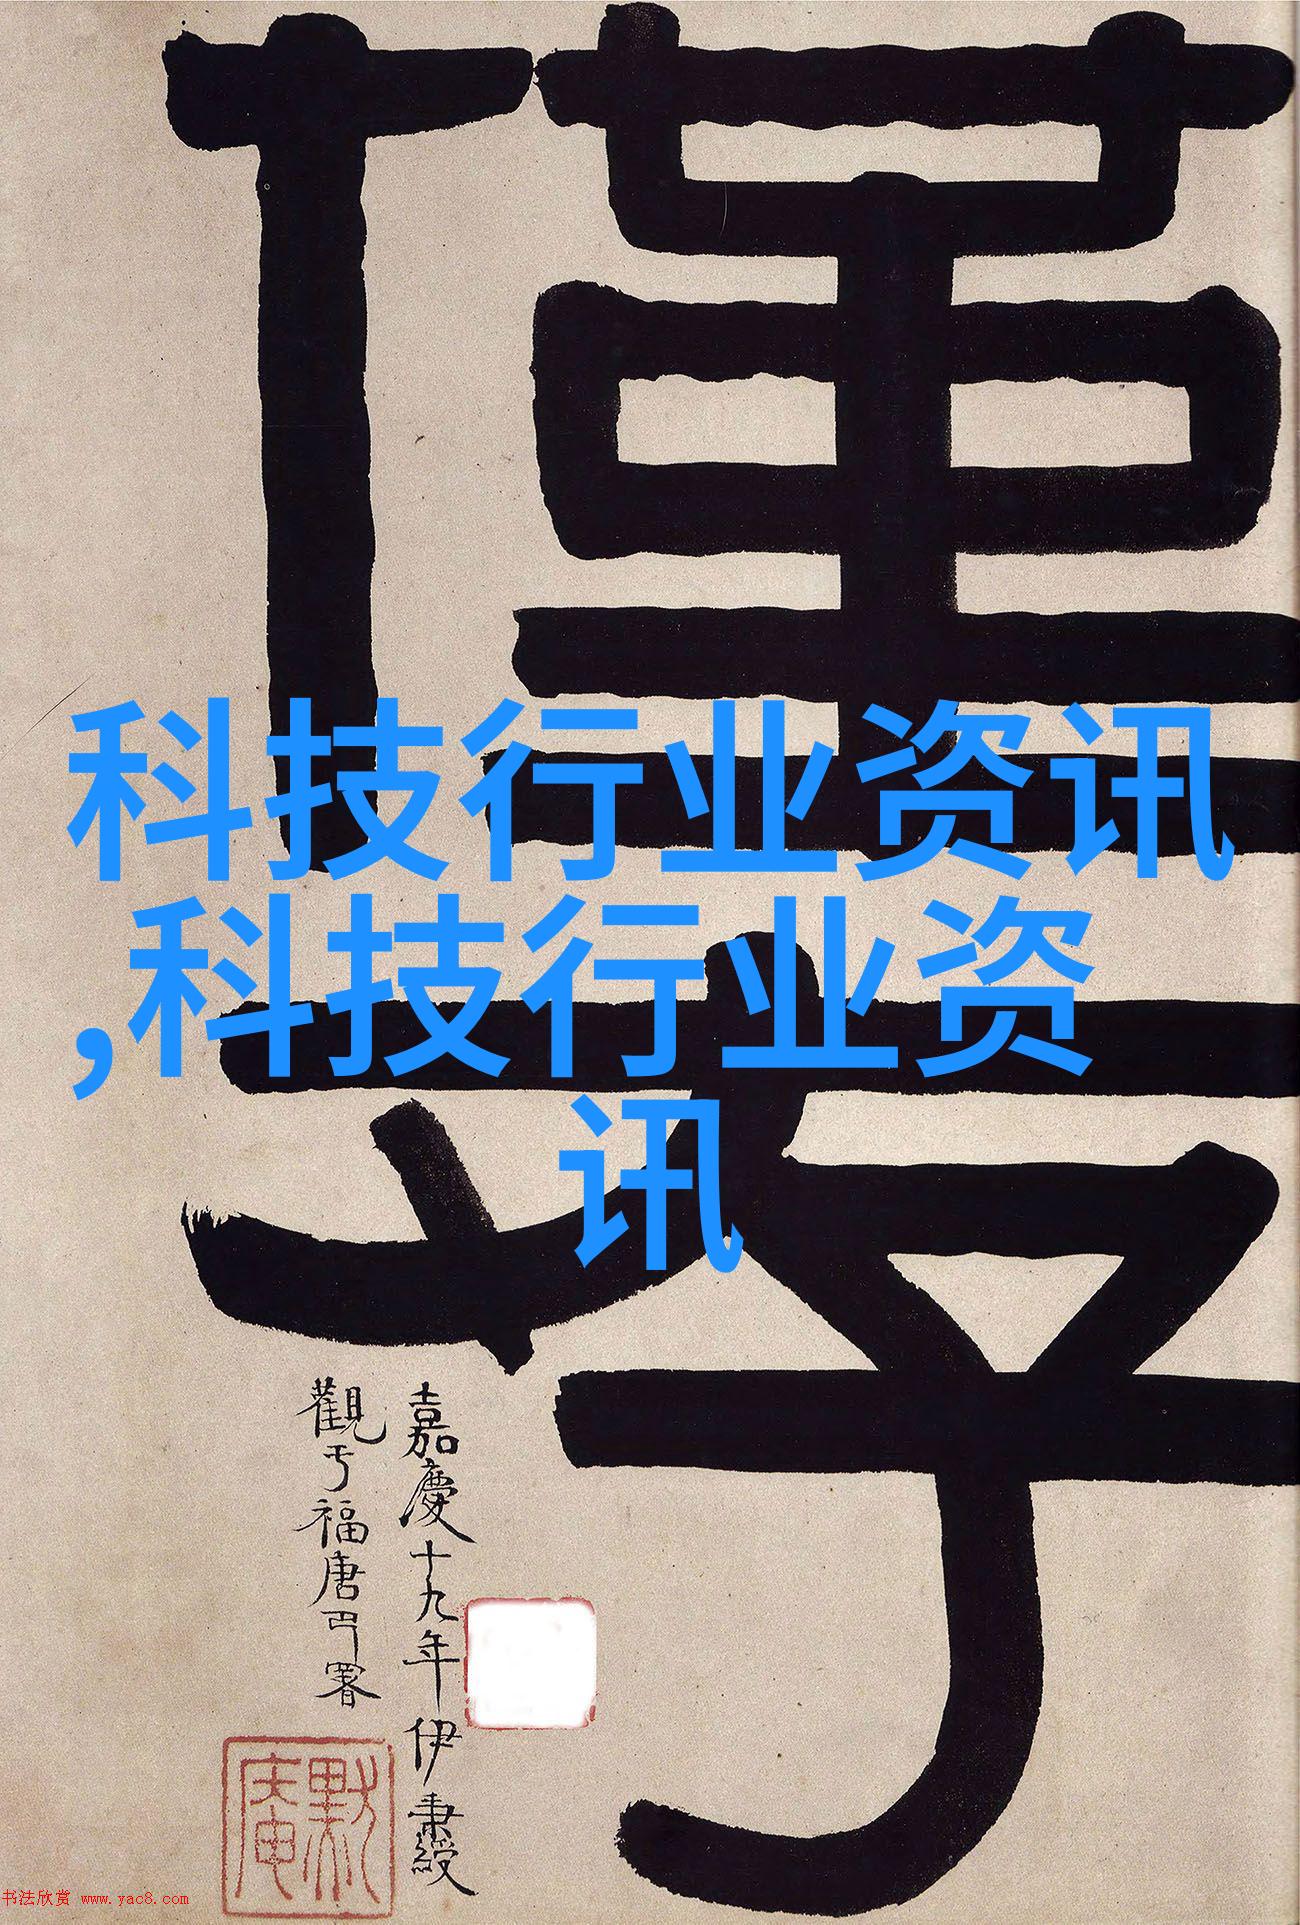 科技行业资讯
,科技行业资
讯
嘉慶十九年伊秉綬
觀于福唐
書法欣赏 www.yac8.com